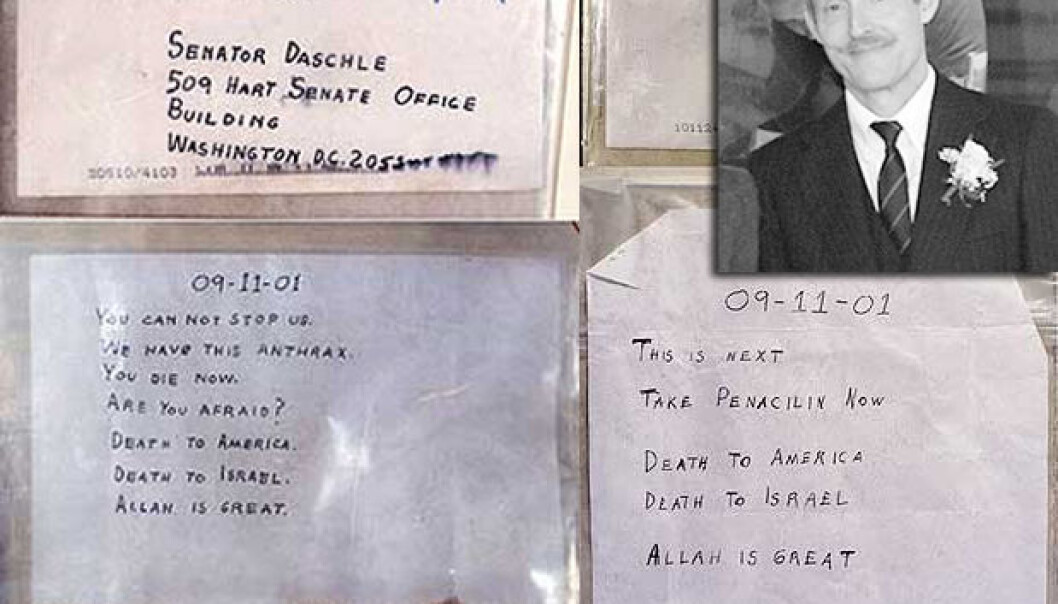 SENATOR DASCHLE
509 HART SENATE OFFICE
BUILDING
WASHINGTON D.C. 205
20510/4103
10112
09-11-01
YOU CAN NOT STOP US.
WE HAVE THIS ANTHRAX.
YOU DIE NOW.
ARE YOU AFRAID?
DEATH TO AMERICA.
DEATH TO ISRAEL.
ALLAH IS GREAT.
09-11-01
THIS IS NEXT
TAKE PENACILIN NOW
DEATH TO AMERICA
DEATH TO ISRAEL
ALLAH IS GREAT